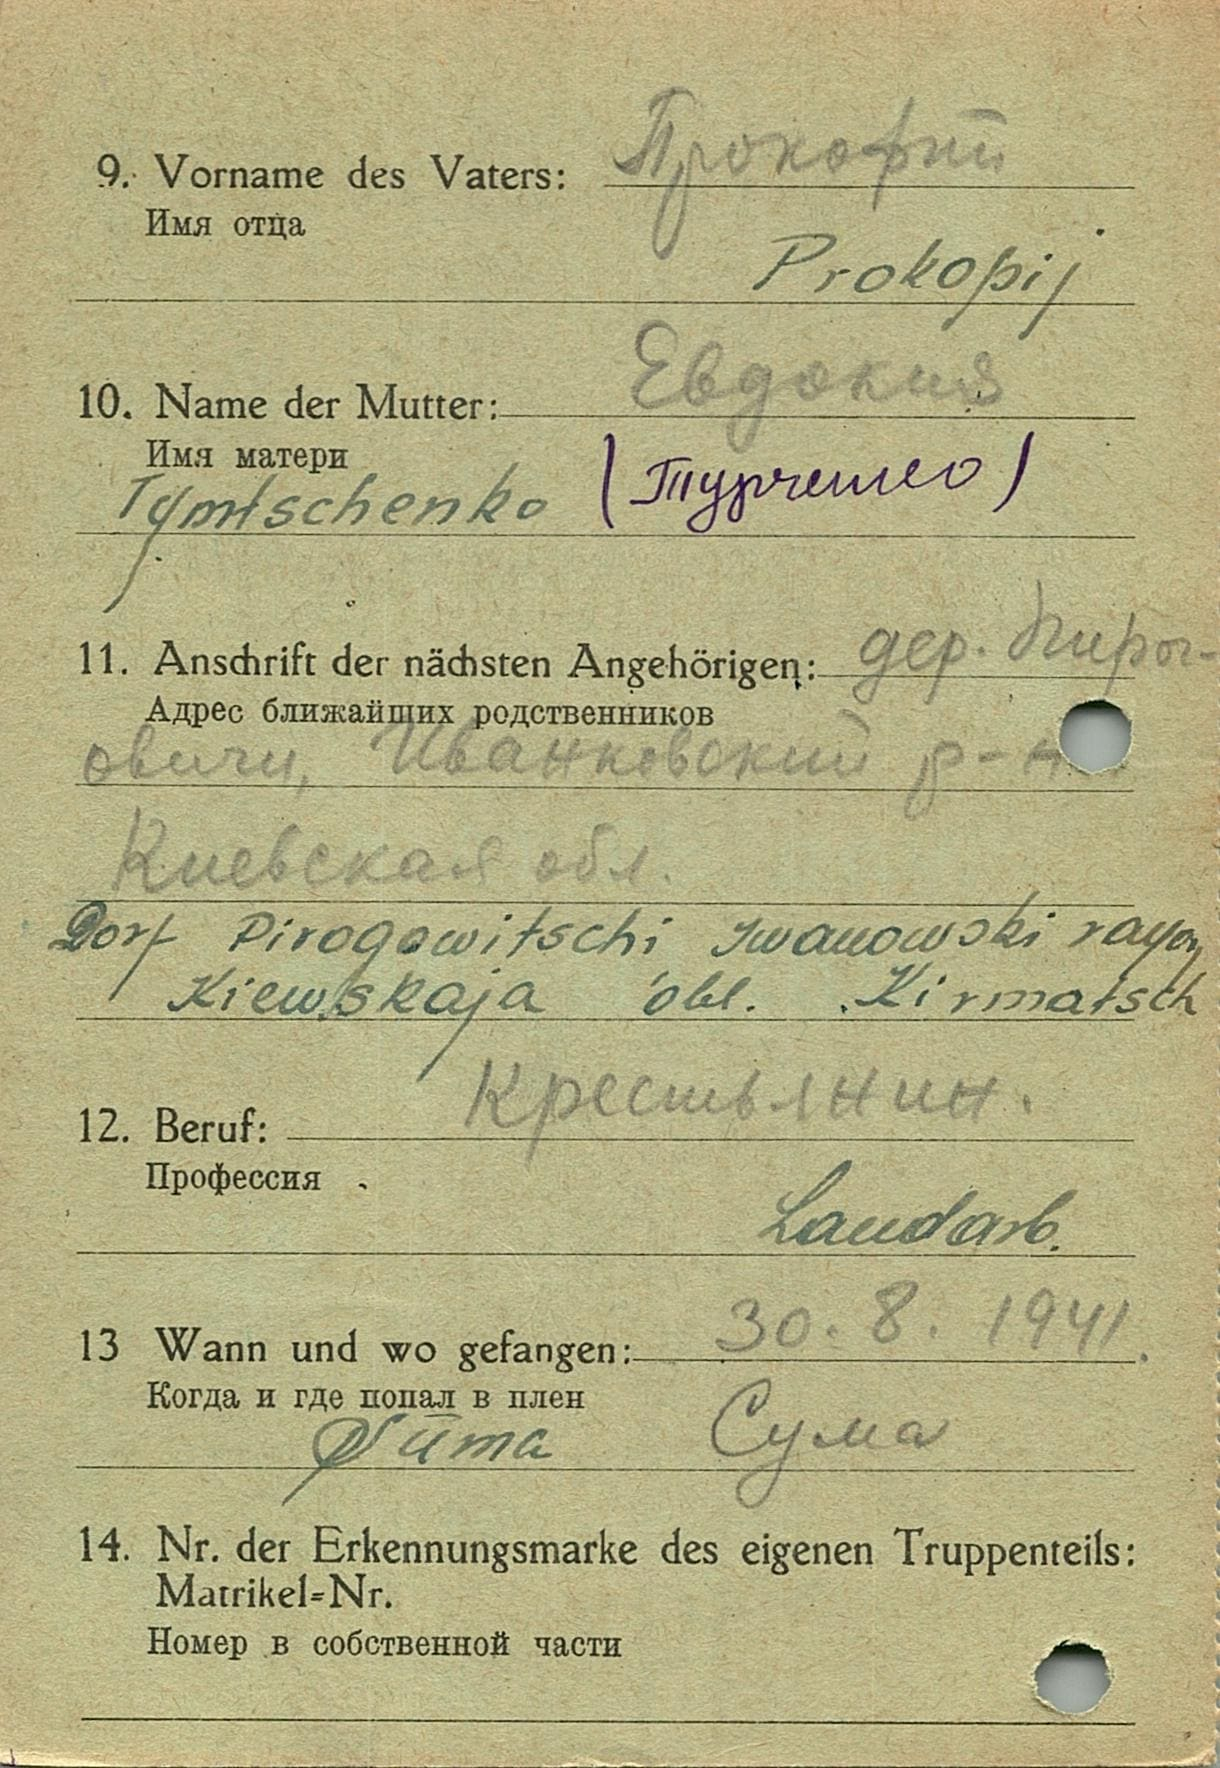 9. Vorname des Vaters: Прокофий
Имя отца
Prokopij
10. Name der Mutter: Евдокия
Имя матери
Tymtschenko (Турченко)
11. Anschrift der nächsten Angehörigen: дер. Пирог-
Адрес ближайших родственников
овичи, Иванковский р-н
Киевская обл.
Dorf Pirogowitschi Iwanowski rayon
Kiewskaja obl. Kirmatsch
12. Beruf: Крестьянин.
Профессия
Landarb.
13 Wann und wo gefangen: 30. 8. 1941.
Когда и где попал в плен
Сума
14. Nr. der Erkennungsmarke des eigenen Truppenteils:
Matrikel-Nr.
Номер в собственной части